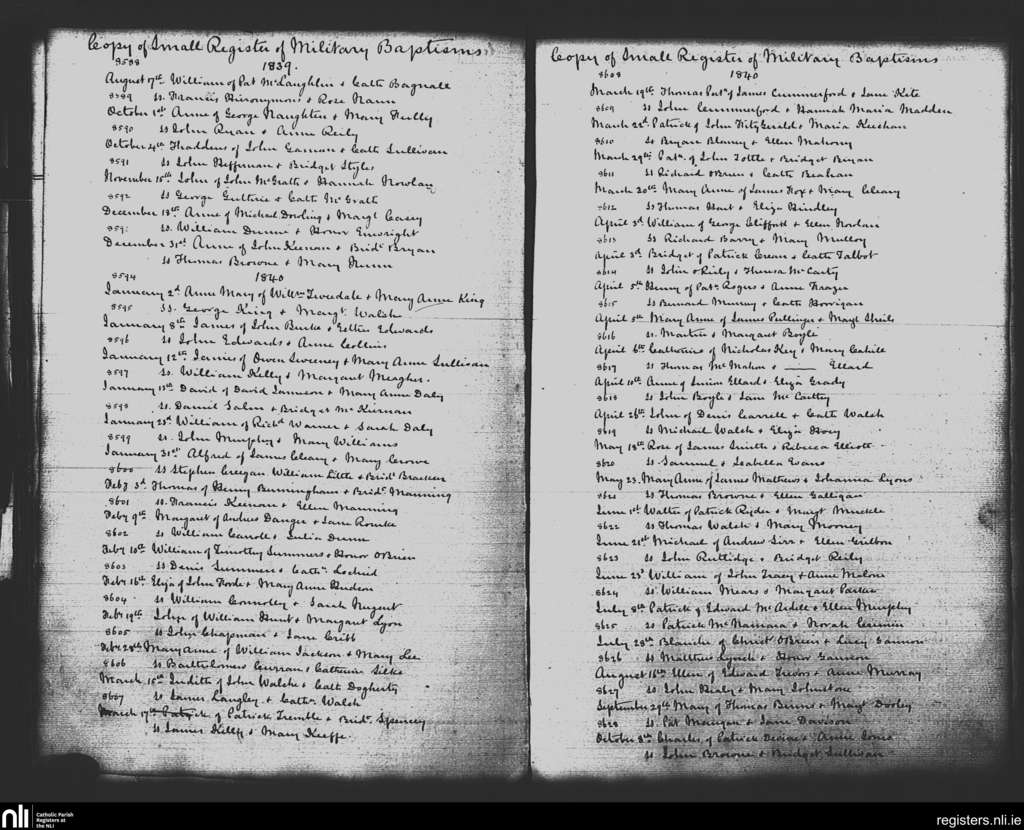 Copy of Small Register of Military Baptisms
8588
1839.
August 17th William of Pat McLaughlin & Cath Bagnall
8589 Ss. Francis Hieronymons & Rose Nann
October 1st Anne of George Naughten & Mary Reilly
8590 Ss John Ryan & Anne Reily
October 4th Thaddeus of John Gannan & Cath Sullivan
8591 Ss John Heffernan & Bridget Styles
November 15th John of John McGrath & Hannah Nowlan
8592 Ss George Guthrie & Cath McGrath
December 18th Anne of Michael Dowling & Margt Casey
859 Ss. William Dunne & Honor Enwright
December 31st Anne of John Keenan & Bridt Bryan
Ss Thomas Browne & Mary Nunn
8594 1840
January 2d Anne Mary of Willm Tweedale & Mary Anne King
8595 Ss. George King & Margt. Walsh
January 8th James of John Burke & Esther Edwards
8596 Ss John Edwards & Anne Collins
January 12th James of Owen Sweeney & Mary Anne Sullivan
8597 Ss. William Kelly & Margaret Meagher.
January 13th David of David Jameson & Mary Anne Daly
8598 Ss. Daniel Galvin & Bridget McKiernan
January 25d William of Richd Warner & Sarah Daly
8599 Ss. John Murphy & Mary Williams
January 31st Alfred of James Cleary & Mary Crowe
8600 Ss Stephen Creegan William Little & Bridt Bracken
Feby 3d Thomas of Henry Burmingham & Bridt Manning
8601 Ss. Francis Keenan & Ellen Manning
Feby 9th Margaret of Andrew Danger & Jane Rourke
8602 Ss William Carroll & Julia Dunn
Feby 10th William of Timothy Summers & Honor OBrien
8603 Ss Denis Summers & Cathn
Feby 16th Eliza of John Forde & Mary Anne Hudson
8604 Ss William Connolley & Sarah Nugent
Feby 19th John of William Hunt & Margaret Lyon
8605 Ss John Chapman & Jane Cribb
Feby 28th Mary Anne of William Jackson & Mary Lee
8606 Ss Bartholomew Curran & Catherine Silke
March 15th Judith of John Walsh & Cath Dogherty
8607 Ss James Langley & Cathn Walsh
March 17th Patrick of Patrick Tremble & Bridt. Spencey
Ss James Kelly & Mary Keeffe
Copy of Small Register of Military Baptisms
8608 1840
March 19th Thomas Patk of James Cummerford & Jane Kete
8609 Ss John Cummerford & Hannah Maria Madden
March 22d Patrick of John FitzGerald & Maria Keehan
8610 Ss Bryan Blaney & Ellen Mahony
March 29th Patk. of John Tottle & Bridget Bryan
8611 Ss Richard OBrien & Cath Beahan
March 20th Mary Anne of James Fox & Mary Cleary
8612 Ss Thomas Hart & Eliza Hindley
April 3d William of George Cliffortt & Ellen Nowlan
8613 Ss Richard Barry & Mary Mulloy
April 3d Bridget of Patrick Crean & Cath Talbot
8614 Ss John O Riely & Theresa McCarty
April 5th Henry of Patk Rogers & Anne Frazer
8615 Ss Bernard Murray & Cath Horrigan
April 5th Mary Anne of James Pullinger & Margt Sheils
8616 Ss. Martin & Margaret Boyle
April 6th Catherine of Nicholas Key & Mary Cahill
8617 Ss Thomas McMahon & —— Ellard
April 10th Anne of Simon Ellard & Eliza Grady
8618 Ss John Boyle & Jane McCarthy
April 26th John of Denis Carrell & Cath Walsh
8619 Ss Michael Walsh & Eliza Hoey
May 18th Rose of James Smith & Rebecca Elliott
8620 Ss. Samuel & Isabella Evans
May 23. Mary Anne of James Mathews & Johanna Lyons
8621 Ss Thomas Browne & Ellen Galligan
June 1st Walter of Patrick Ryder & Margt Muckle
8622 Ss Thomas Walsh & Mary Mooney
June 21st Michael of Andrew Sirr & Ellen
8623 Ss John Rutlidge & Bridget Reily
June 23d William of John Tracy & Anne Malone
8624 Ss William Mears & Margaret Parker
July 8th Patrick of Edward McArdell & Ellen Murphy
8625 Ss Patrick McNamara & Norah
July 28th Blanche of Christ OBrien & Lucy Gannon
8626 Ss Matthew Lynch & Honor Gannon
August 16th Ellen of Edward Trevors & Anne Murray
8627 Ss John Healy & Mary Johnstone
September 29th Mary of Thomas Binns & Margt Dooley
8628 Ss. Pat Mangan & Jane Davison
October 8th Charles of Patrick Devine & Anne Jones
Ss John Browne & Bridget Sullivan
nli
Catholic Parish
Registers at
the NLI
registers.nli.ie